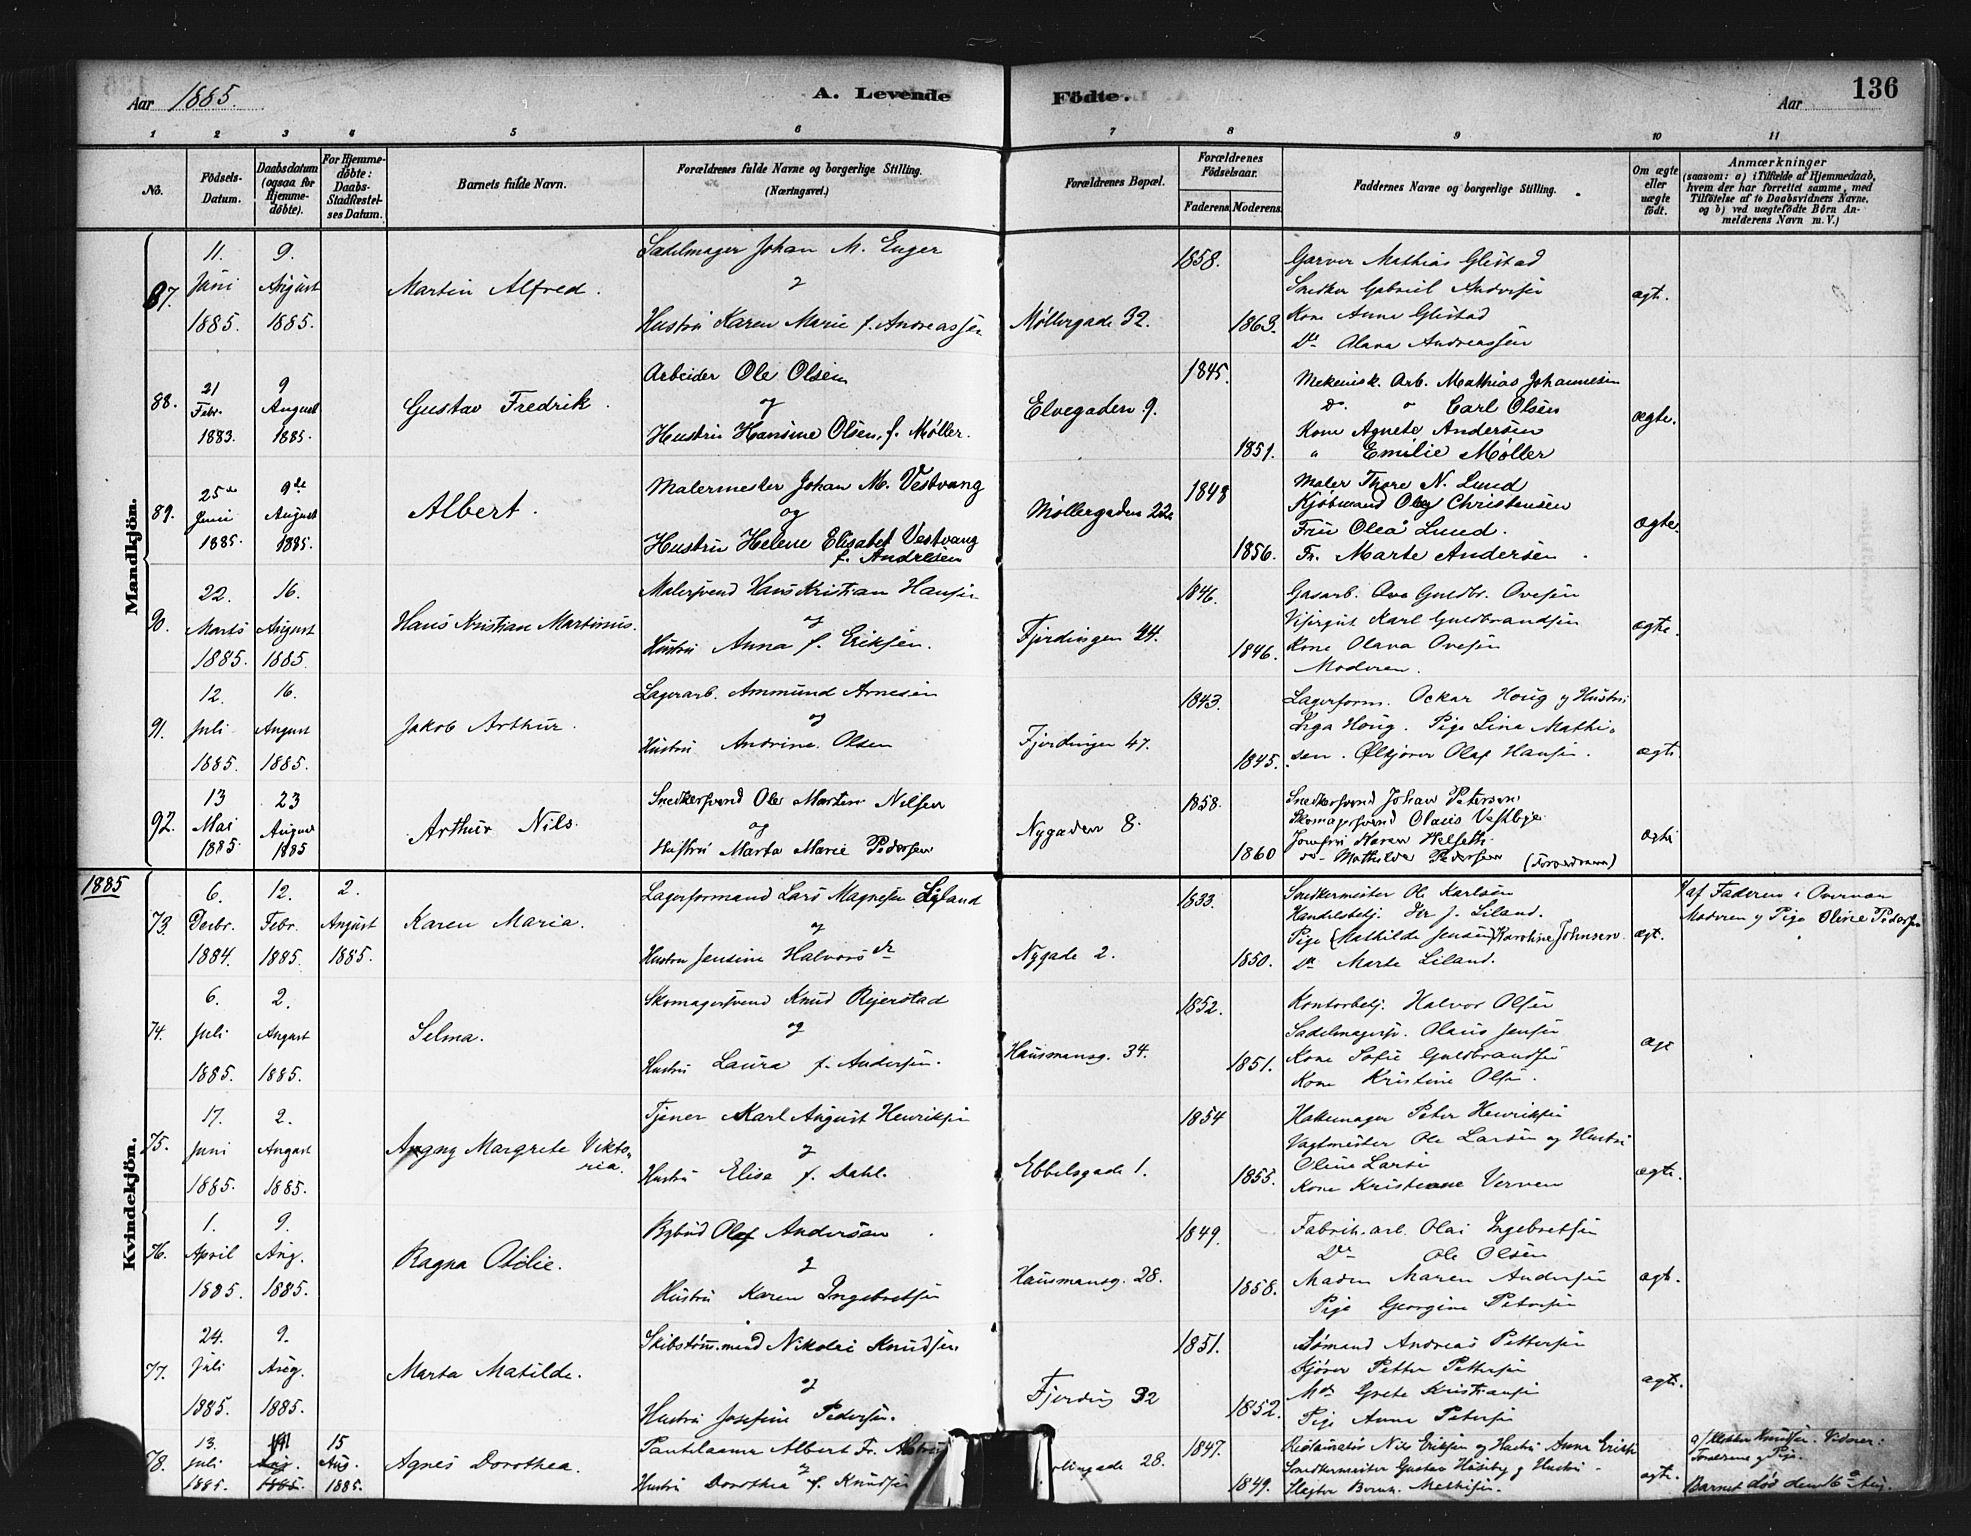 Aar 1885.
A. Levende Födte.
Aar
136
1 2 3 4 5 6 7 8 9 10 11
No.
Födsels-Datum.
Daabsdatum (ogsaa for Hjemme-döbte).
For Hjemme-döbte: Daabs-Stadfæstel-ses Datum.
Barnets fulde Navn.
Forældrenes fulde Navne og borgerlige Stilling. (Næringsvei.)
Forældrenes Bopæl.
Forældrenes Födselsaar.
Faderens. Moderens.
Faddernes Navne og borgerlige Stilling.
Om ægte eller uægte födt.
Anmærkninger
(saasom: a) i Tilfælde af Hjemmedaab, hvem der har forrettet samme, med Tilföielse af to Daabsvidners Navne. og b) ved uægtefödte Börn An-melderens Navn m. V.)
Mandkjön.
87.
11. Juni 1885.
9. August 1885.
Martin Alfred.
Sadelmager Johan M. Enger
&
Hustru Karen Marie f. Andreassen
Møllergade 32.
1858.
1863.
Garver Mathias Glestad
Snedker Gabriel Andersen
Kone Anne Glestad
Do Olava Andreassen
ægte.
88.
21 Febr. 1883.
9 August 1885.
Gustav Fredrik.
Arbeider Ole Olsen
og
Hustru Hansine Olsen, f. Møller.
Elvegaden 9.
1845.
1851.
Mekanisk. Arb. Mathias Johannesen
Do. " Carl Olsen
Kone Agnete Andersen
" Emilie Møller
ægte.
89.
25de Juni 1885.
9de August 1885.
Albert.
Malermester Johan M. Vestvang
og
Hustru Helene Elisabet Vestvang
f. Andresen
Møllergaden 22a
1848
1856.
Maler Thore N. Lund
Kjøbmand Oleg Christensen
Fru Olea Lund.
Fr. Marte Andersen
ægte
90.
22. Marts 1885.
16. August 1885.
Hans Kristian Martinius.
Malersvend Hans Kristian Hansen
og
Hustru Anna f. Eriksen.
Fjerdingen 44.
1846.
1846.
Gasarb. Ove Guldbr. Ovesen
Visergut Karl Guldbrandsen
Kone Olava Ovesen
Moderen.
ægte.
91.
12. Juli 1885.
16. August 1885.
Jakob Arthur.
Lagerarb. Ammund Arnesen
og
Hustru Andrine Olsen
Fjerdingen 47.
1843.
1845.
Lagerform. Oskar Houg & Hustru
Inga Houg. Pige Lina Mathi-
sen. Ølkjører Olaf Hansen.
ægte.
92.
13 Mai 1885
23 August 1885
Arthur Nils.
Snedkersvend Ole Martin Nilsen
og
Hustru Marta Marie Pedersen
Nygaden 8.
1858.
1860
Snedkersvend Johan Petersen
Skomagersvend Olaus Vestbye
Jomfru Karen Helseth
do Mathilde Pedersen
ægte
1885
Kvindekjön.
73.
6. Decbr. 1884.
12. Febr. 1885.
2. August 1885.
Karen Maria.
Lagerformand Lars Magnesen Liland
og
Hustru Jensine Halvorsdr
Nygade 2.
1833.
1850.
Snedkermester Ole Karlsen
Handelsbetj. Iver J. Liland.
Pige (Mathilde Jensen) Karoline Johnsen
Do Marte Liland.
ægt.
af Faderen i Overvær
Moderen og Pige Oline Pedersen
74.
6. Juli 1885.
2. August 1885.
Selma.
Skomagersvend Knud Rejerstad
og
Hustru Laura f. Andersen.
Hausmansg. 34.
1852.
1851.
Kontorbetj. Halvor Olsen
Sadelmagersv. Olaus Jensen
Kone Sofie Guldbrandsen
Kone Kristine Olsen.
ægt
75.
17. Juni 1885.
2. August 1885.
Angny Margrete Vikto-
ria.
Tjener Karl August Henriksen
og
Hustru Elise f. Dahl.
Ebbelsgade 1.
1854
1855.
Hattemager Peter Henriksen
Vagtmester Ole Larsen og Hustru
Oline Larsen
Kone Kristiane Verven
ægte.
76.
1. April 1885.
9. Aug. 1885.
Ragna Otilie.
Bybud Olaf Andersen
&
Hustru Karen Ingebretsen
Hausmansg. 28.
1849.
1858.
Fabrik. arb. Olai Ingebretsen
Do Ole Olsen
Madm Maren Andersen
Pige Georgine Petersen
ægte.
77.
24. Juli 1885.
9. Aug. 1885.
Marta Matilde.
Skibstømmermand Nikolai Knudsen
og
Hustru Josefine Pedersen.
Fjerding 32
1851.
1852.
Sømand Andreas Pettersen
Kjører Petter Pettersen
Mdm Grete Kristiansen
Pige Anne Petersen
ægte.
78.
13. Juli 1885.
Aug. 1885.
15 Aug. 1885.
Agnes Dorothea.
Pantelaaner Albert Fr.
og
Hustru Dorothea f. Knudsen
28.
1847.
1849.
Nils Eriksen og Hustru Anne Eriksen
Snedkermester Gustav Huseby & Hustru
Slagter Bernh. Mathisen.
ægte.
a/ Klokker Knudsen. Vidner:
Forældrene og Pige.
Barnet død den 16de Aug.